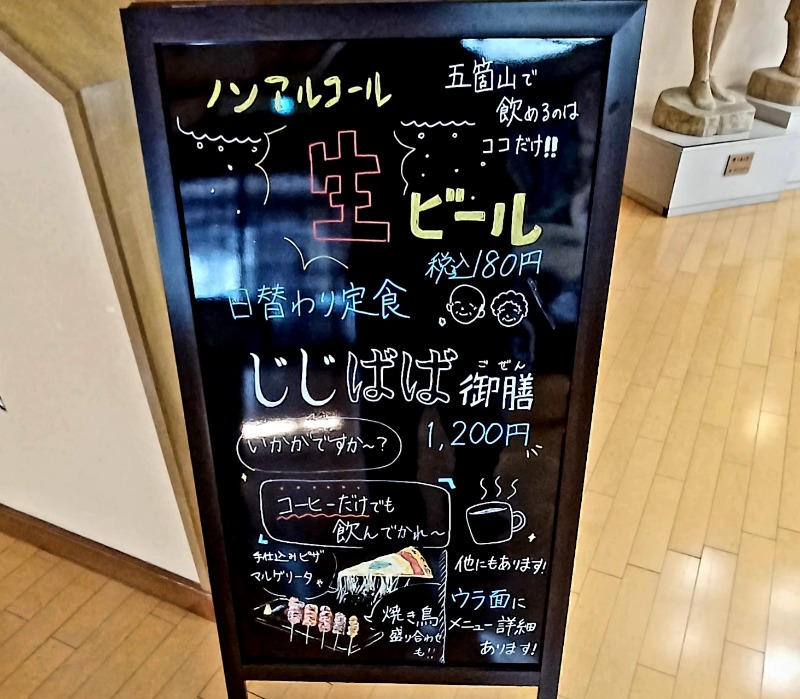 ノンアルコール
五箇山で
飲めるのは
ココだけ!!
生
ビール
税込180円
日替わり定食
じじばば
ごぜん
御膳
1,200円
いかがですか〜?
コーヒーだけでも
飲んでかれ〜
手仕込みピザ
マルゲリータや
他にもあります!
焼き鳥
盛り合わせ
も!!
ウラ面に
メニュー詳細
あります!